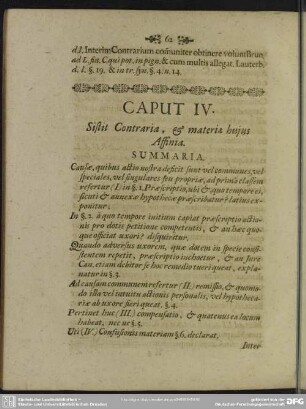 62
d. l. Interim Contrarium com̃uniter obtinere volunt Brun.
ad L. fin. C. qui pot. in pign. & cum multis allegat. Lauterb.
d. l. §. 19. & in tr. syn. §. 4. n. 14.
CAPUT IV.
Sistit Contraria, & materia hujus
Affinia.
SUMMARIA.
Causæ, quibus actio nostra deficit sunt vel communes, vel
speciales, vel singulares seu propriæ, ad primã classem
refertur I. in §. 1. Præscriptio, ubi & quo tempore ei,
sicuti & annexæ hypothecæ præscribatur latius ex-
ponitur.
In §. 2. à quo tempore initium capiat præscriptio actio-
nis pro dotis petitione competentis, & an hæc quo-
que officiat uxori? disquiritur.
Quando adversus uxorem, quæ dotem in specie consi-
stentem repetit, præscriptio inchoetur, & an Jure
Can. etiam debitor se hoc remedio tueri queat, expla-
natur in §. 3.
Ad causam communem refertur (II.) remissio, & quomo-
do illa vel intuitu actionis personalis, vel hypotheca-
riæ ab uxore fieri queat. §. 4.
Pertinet huc (III.) compensatio, & quatenus ea locum
habeat, nec ne §. 5.
Uti (IV.) Confusionis materiam §. 6. declarat.
Inter